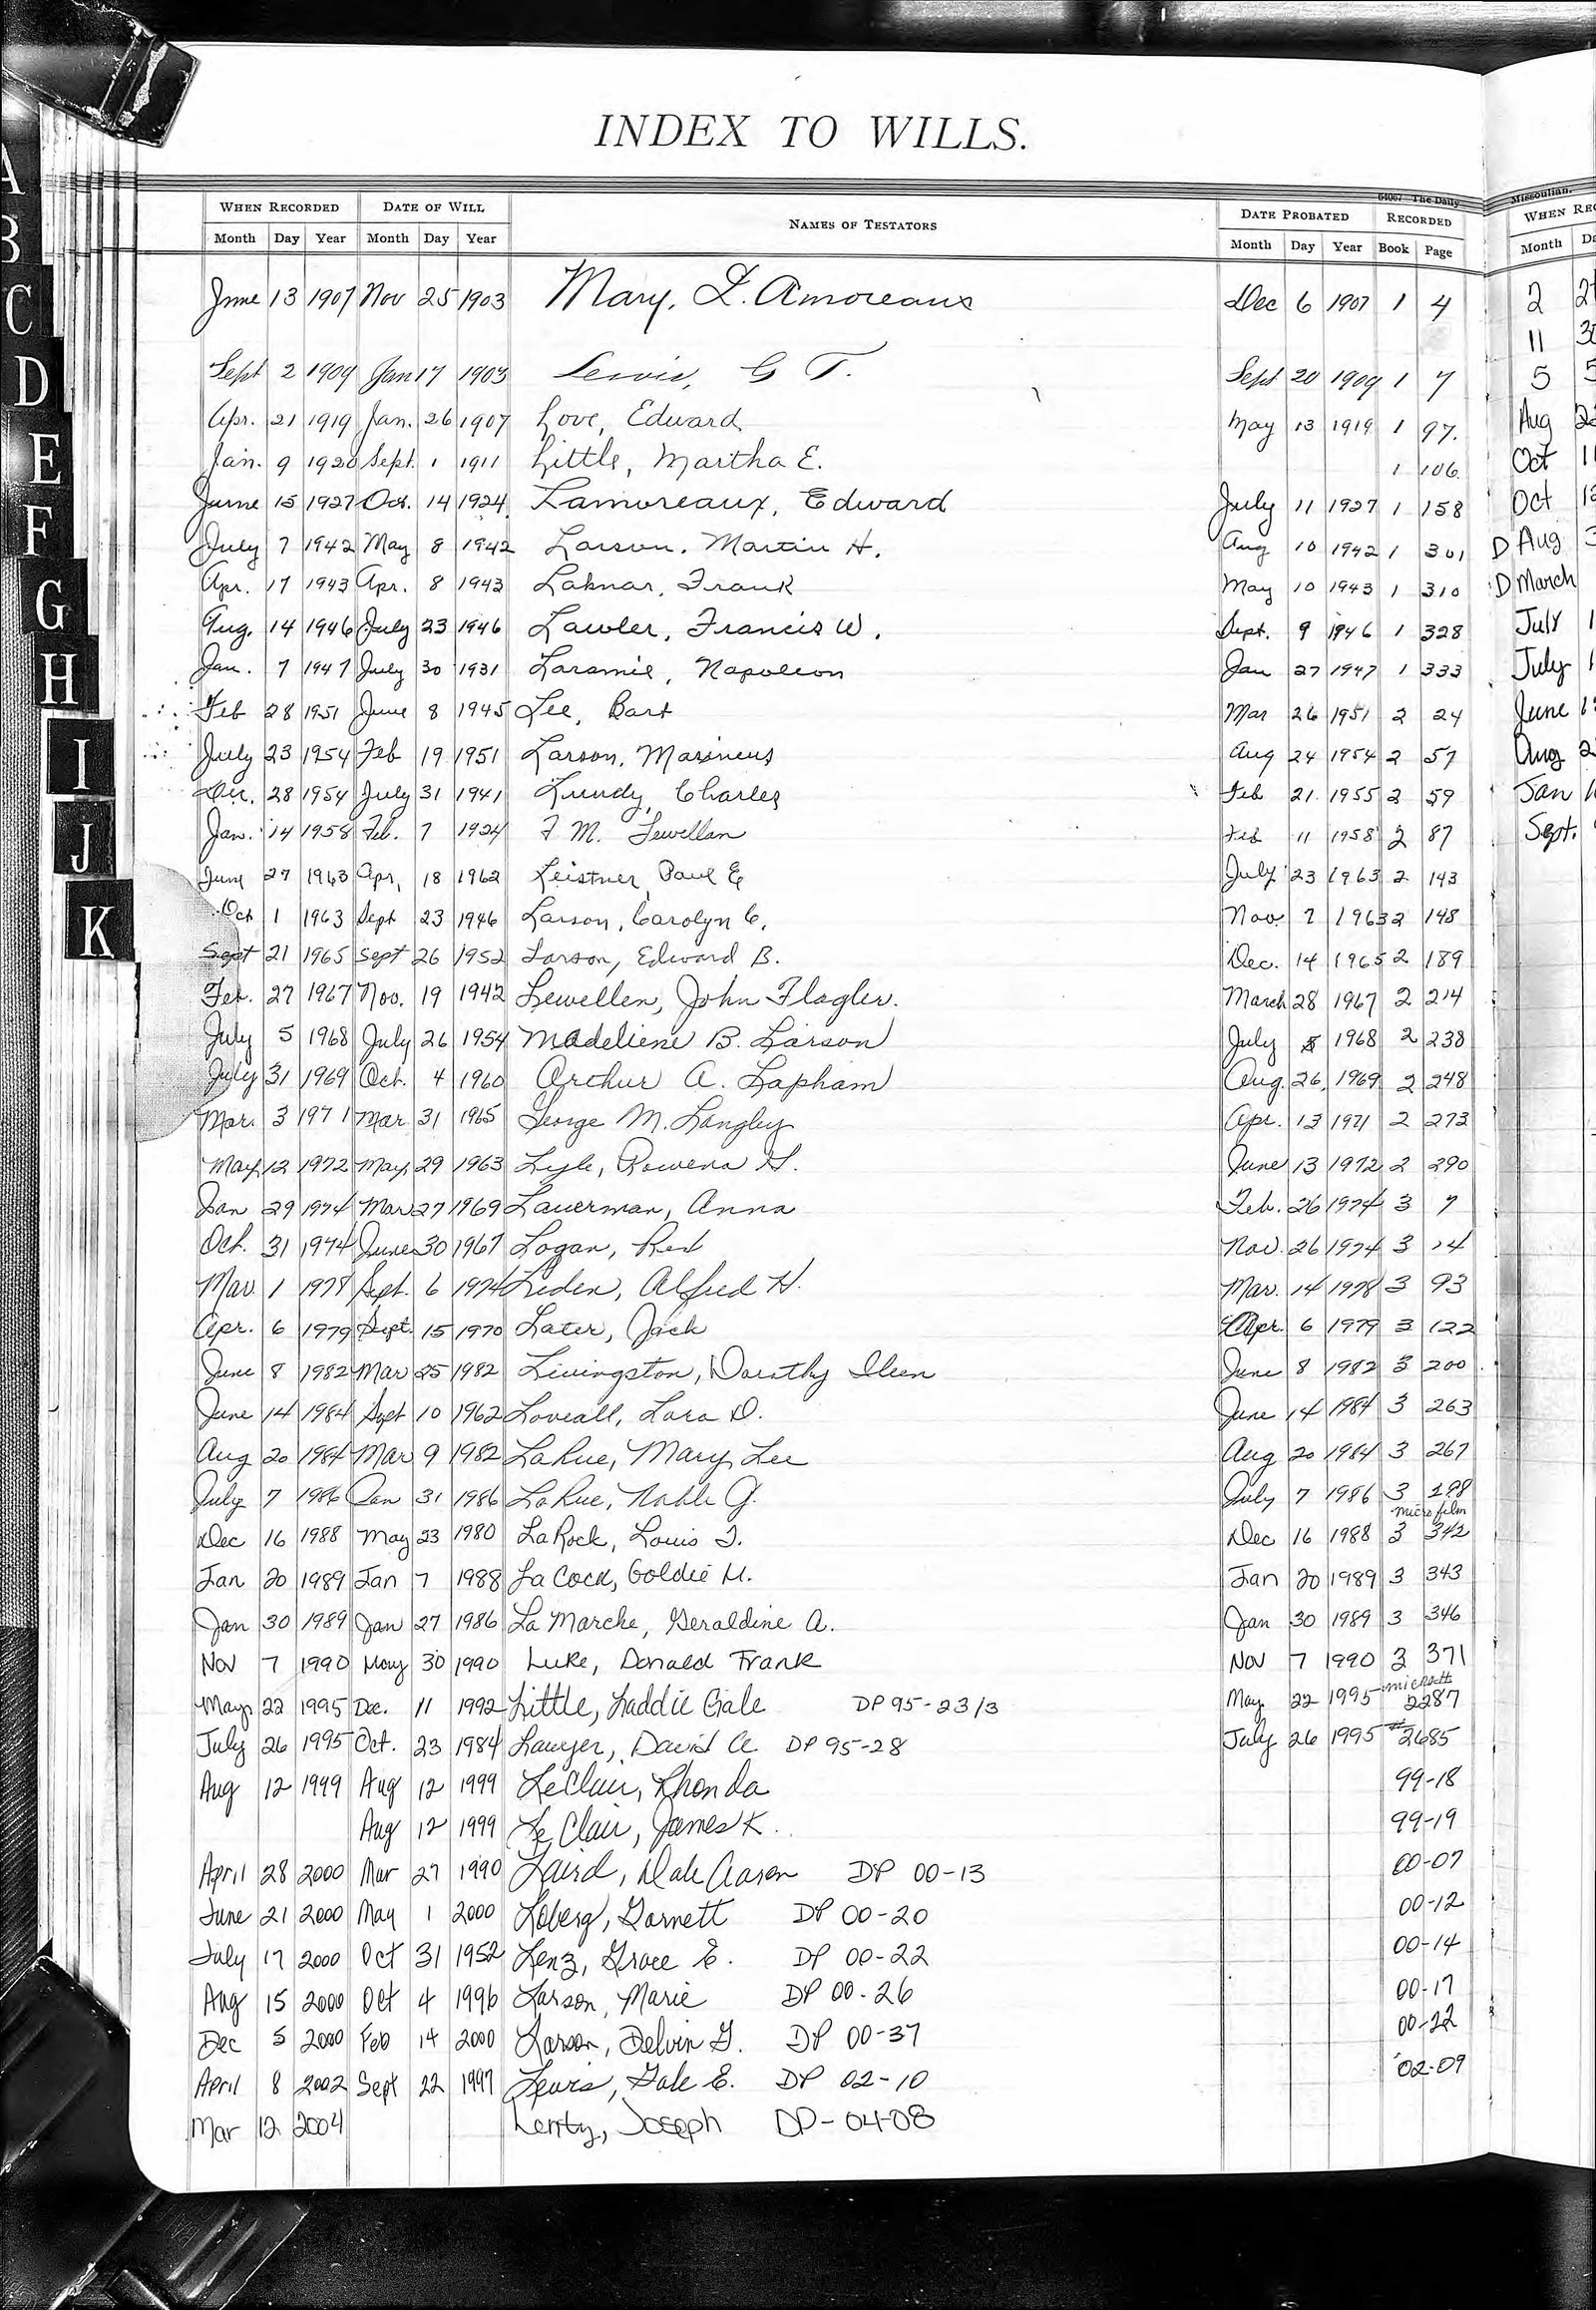 INDEX TO WILLS.
64067 The Daily Missoulian.
WHEN RECORDED DATE OF WILL NAMES OF TESTATORS DATE PROBATED RECORDED WHEN REC
Month Day Year Month Day Year Month Day Year Book Page Month Da
June 13 1907 Nov 25 1903 Mary, L. Amoreaux Dec 6 1907 1 4
Sept 2 1909 Jan 17 1903 Lewis, G T. Sept 20 1909 1 7
Apr. 21 1919 Jan. 26 1907 Love, Edward May 13 1919 1 97.
Jan. 9 1920 Sept. 1 1911 Little, Martha E. 1 106
June 15 1927 Oct. 14 1924 Lamoreaux, Edward July 11 1927 1 158
July 7 1942 May 8 1942 Larson, Martin H. Aug 10 1942 1 301
Apr. 17 1943 Apr. 8 1943 Laknar, Frank May 10 1943 1 310
Aug. 14 1946 July 23 1946 Lawler, Francis W. Sept. 9 1946 1 328
Jan. 7 1947 July 30 1931 Laramie, Napoleon Jan 27 1947 1 333
Feb 28 1951 June 8 1945 Lee, Bart Mar 26 1951 2 24
July 23 1954 Feb 19 1951 Larson, Marineus Aug 24 1954 2 57
Dec. 28 1954 July 31 1941 Lundy, Charles Feb 21 1955 2 59
Jan. 14 1958 Feb. 7 1924 F. M. Lewellen Feb 11 1958 2 87
June 27 1963 Apr, 18 1962 Leistner, Paul E July 23 1963 2 143
Oct 1 1963 Sept 23 1946 Larson, Carolyn C. Nov. 7 1963 2 148
Sept 21 1965 Sept 26 1952 Larson, Edward B. Dec. 14 1965 2 189
Feb. 27 1967 Nov. 19 1942 Lewellen, John Flagler. March 28 1967 2 214
July 5 1968 July 26 1954 Madeliene B. Larson July 8 1968 2 238
July 31 1969 Oct. 4 1960 Arthur A. Lapham Aug. 26, 1969 2 248
Mar. 3 1971 Mar 31 1965 George M. Langley Apr. 13 1971 2 273
May, 12 1972 May, 29 1963 Lyle, Rowena H. June 13 1972 2 290
Jan 29 1974 Mar 27 1969 Lauerman, Anna Feb. 26 1974 3 7
Oct. 31 1974 June 30 1967 Logan, Red Nov. 26 1974 3 14
Mar. 1 1978 Sept. 6 1974 Liden, Alfred H. Mar. 14 1978 3 93
Apr. 6 1979 Sept. 15 1970 Later, Jack Apr. 6 1979 3 122
June 8 1982 Mar 25 1982 Livingston, Dorothy Ileen June 8 1982 3 200
June 14 1984 Sept 10 1962 Loveall, Lara D. June 14 1984 3 263
Aug 20 1984 Mar 9 1982 LaRue, Mary Lee Aug 20 1984 3 267
July 7 1986 Jan 31 1986 LaRue, Noble G. July 7 1986 3 298
microfilm
Dec 16 1988 May 23 1980 LaRock, Louis J. Dec 16 1988 3 342
Jan 20 1989 Jan 7 1988 La Cock, Goldie M. Jan 20 1989 3 343
Jan 30 1989 Jan 27 1986 La Marche, Geraldine A. Jan 30 1989 3 346
Nov 7 1990 May 30 1990 Luke, Donald Frank Nov 7 1990 3 371
May 22 1995 Dec. 11 1992 Little, Laddie Gale DP 95-23/3 May 22 1995 micro# 2287
July 26 1995 Oct. 23 1984 Lawyer, David A. DP 95-28 July 26 1995 #2685
Aug 12 1999 Aug 12 1999 LeClair, Rhonda 99-18
Aug 12 1999 Le Clair, James K. 99-19
April 28 2000 Mar 27 1990 Laird, Dale Aaron DP 00-13 00-07
June 21 2000 May 1 2000 Loberg, Garnett DP 00-20 00-12
July 17 2000 Oct 31 1952 Lenz, Grace E. DP 00-22 00-14
Aug 15 2000 Oct 4 1996 Larson, Marie DP 00-26 00-17
Dec 5 2000 Feb 14 2000 Larson, Delvin G. DP 00-37 00-22
April 8 2002 Sept 22 1997 Lewis, Gale E. DP 02-10 02-09
Mar 12 2004 Lentz, Joseph DP-04-08
A
B
C
D
E
F
G
H
I
J
K
2 2
11 3
5 5
Aug 22
Oct 11
Oct 12
D Aug 3
D March
July 1
July 1
June 1
Aug 2
Jan 1
Sept.